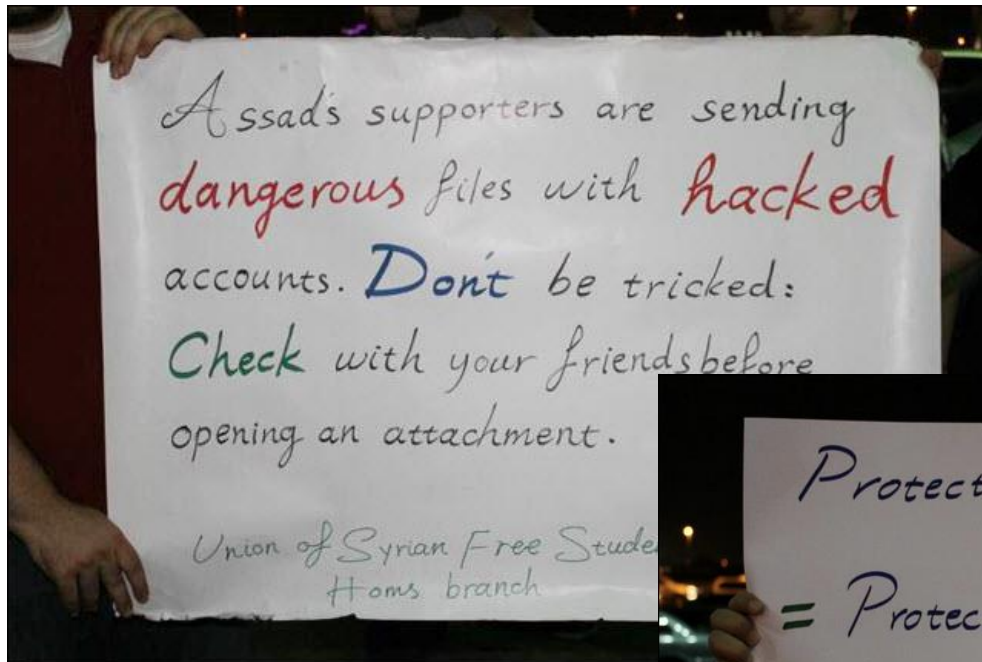 Assad's supporters are sending
dangerous files with hacked
accounts. Don't be tricked:
Check with your friends before
opening an attachment.
Union of Syrian Free
Homs branch
Protect
=